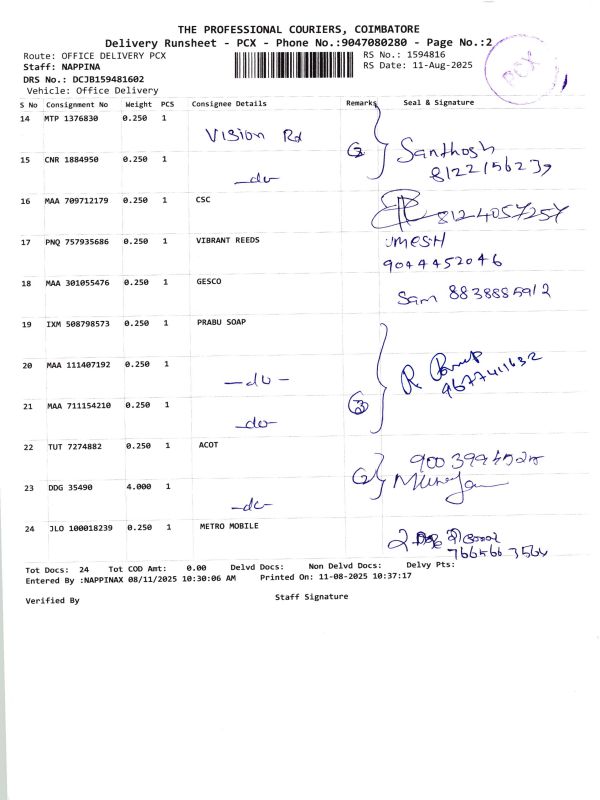 THE PROFESSIONAL COURIERS, COIMBATORE
Delivery Runsheet - PCX - Phone No.:9047080280 - Page No.:2
Route: OFFICE DELIVERY PCX RS No.: 1594816
Staff: NAPPINA RS Date: 11-Aug-2025
DRS No.: DCJB159481602
Vehicle: Office Delivery
PCX
S No Consignment No Weight PCS Consignee Details Remarks Seal & Signature
14 MTP 1376830 0.250 1 Vision Rx
15 CNR 1884950 0.250 1 -do- Santhosh
8122156239
16 MAA 709712179 0.250 1 CSC 8124057257
17 PNQ 757935686 0.250 1 VIBRANT REEDS UMESH
9044452046
18 MAA 301055476 0.250 1 GESCO Sam 8838885912
19 IXM 508798573 0.250 1 PRABU SOAP
20 MAA 111407192 0.250 1 -do- 9677411632
21 MAA 711154210 0.250 1 -do- 3
22 TUT 7274882 0.250 1 ACOT
23 DDG 35490 4.000 1 -do- 2
24 JLO 100018239 0.250 1 METRO MOBILE
Tot Docs: 24 Tot COD Amt: 0.00 Delvd Docs: Non Delvd Docs: Delvy Pts:
Entered By :NAPPINAX 08/11/2025 10:30:06 AM Printed On: 11-08-2025 10:37:17
Verified By Staff Signature